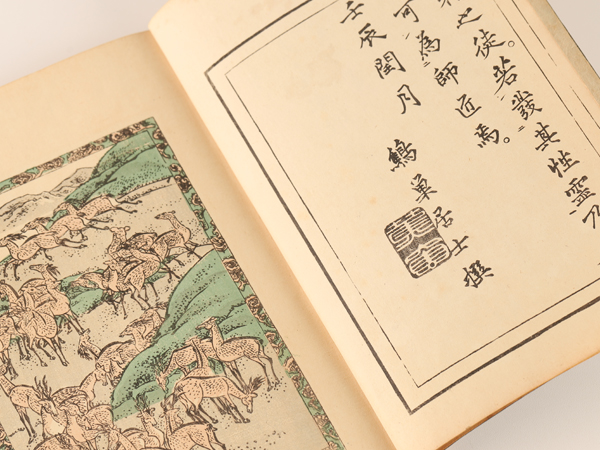 之徒。若發其性靈乃
可為師匠焉。
壬辰閏月
鷦巢居士撰